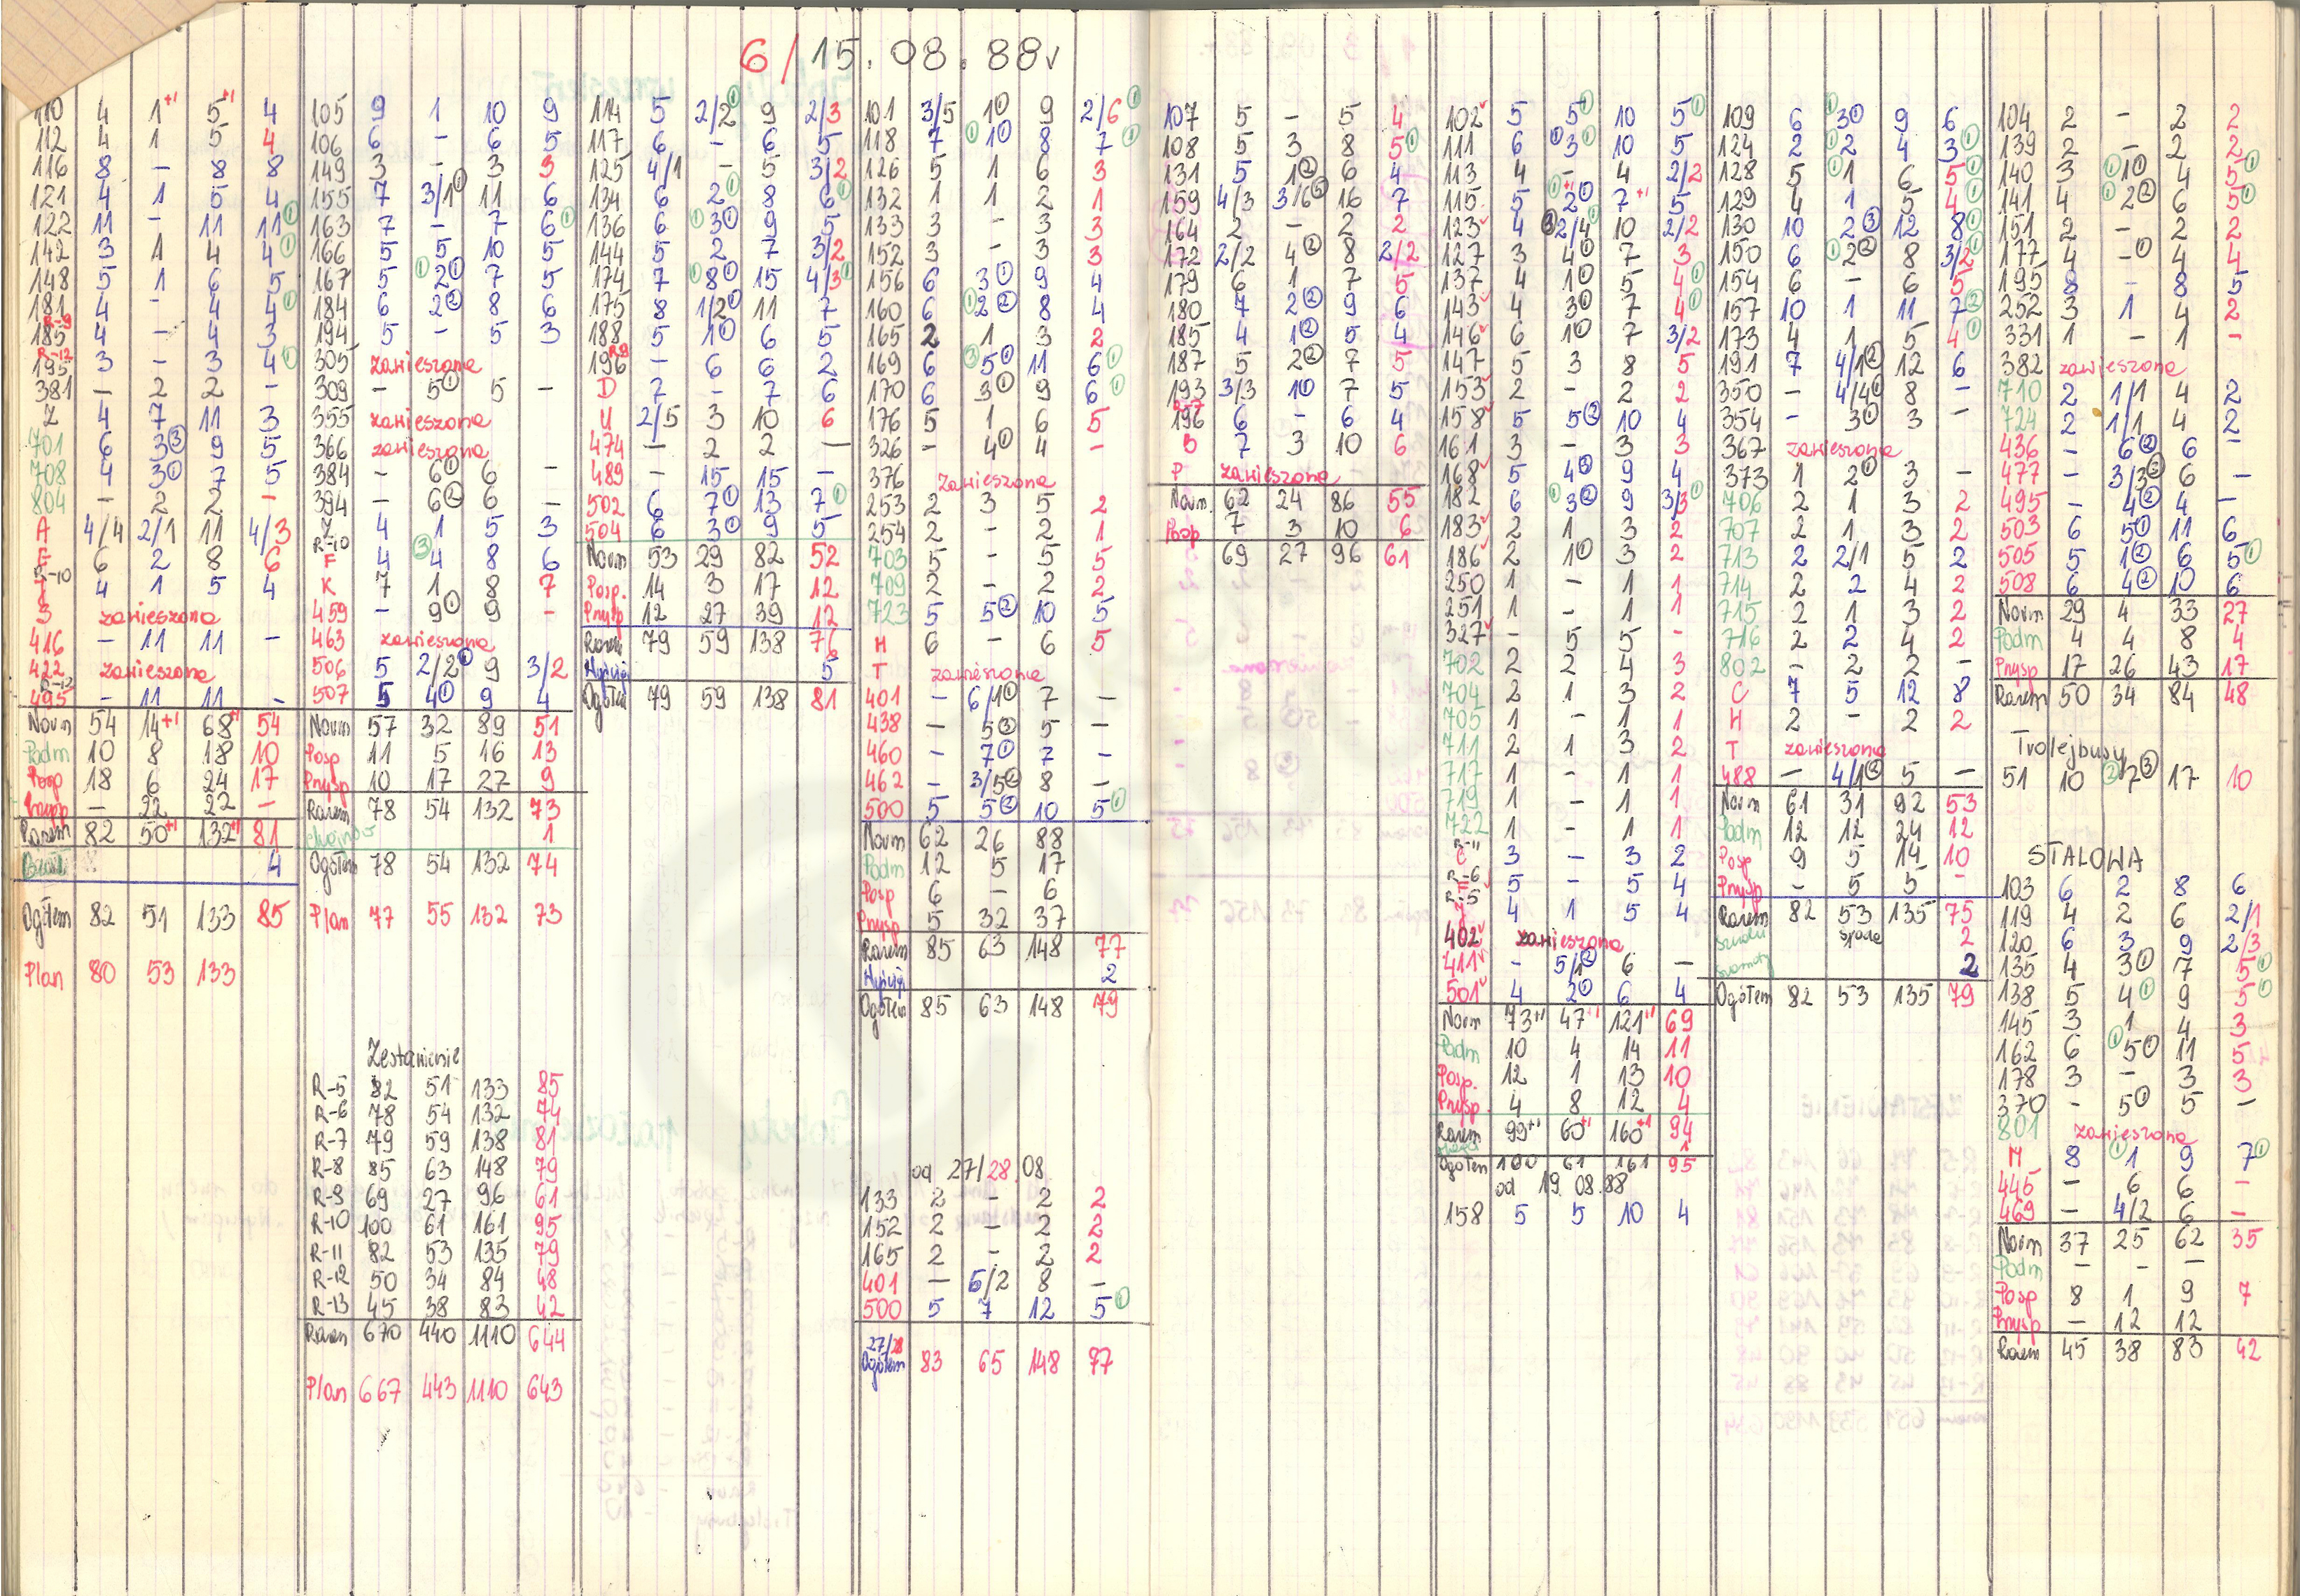 6/15.08.88r
110 4 1+1 5+1 4
112 4 1 5 4
116 8 – 8 8
121 4 1 5 4
122 11 – 11 11①
142 3 1 4 4①
148 5 1 6 5
181 4 – 4 4①
R-9
185 4 – 4 3
R-12
195 3 – 3 4①
381 – 2 2 –
Z 4 7 11 3
701 6 3③ 9 5
708 4 3① 7 5
804 – 2 2 –
A 4/4 2/1 11 4/3
E 6 2 8 6
R-10
4 1 5 4
zawieszona
416 – 11 11 –
422 zawieszona
R-12
495 – 11 11 –
Norm 54 14+1 68+1 54
Podm 10 8 18 10
Posp 18 6 24 17
Przysp – 22 22 –
Razem 82 50+1 132+1 81
4
Ogółem 82 51 133 85
Plan 80 53 133
105 9 1 10 9
106 6 – 6 5
149 3 – 3 3
155 7 3/1① 11 6
163 7 – 7 6①
166 5 5 10 5
167 5 ①2① 7 5
184 6 2② 8 6
194 5 – 5 3
305 zawieszona
309 – 5① 5 –
355 zawieszona
366 zawieszona
384 – 6① 6 –
394 – 6② 6 –
Z 4 1 5 3
R-10
F 4 ③4 8 6
K 7 1 8 7
459 – 9① 9 –
463 zawieszona
506 5 2/2① 9 3/2
507 5 4① 9 4
Norm 57 32 89 51
Posp 11 5 16 13
Przysp 10 17 27 9
Razem 78 54 132 73
Chojnów 1
Ogółem 78 54 132 74
Plan 77 55 132 73
Zestawienie
R-5 82 51 133 85
R-6 78 54 132 74
R-7 79 59 138 81
R-8 85 63 148 79
R-9 69 27 96 61
R-10 100 61 161 95
R-11 82 53 135 79
R-12 50 34 84 48
R-13 45 38 83 42
Razem 670 440 1110 644
Plan 667 443 1110 643
114 5 2/2① 9 2/3
117 6 – 6 5
125 4/1 – 5 3/2
134 6 2① 8 6①
136 6 ①3① 9 5
144 5 2 7 3/2
174 7 ①8① 15 4/3①
175 8 1/2① 11 7
188 5 1① 6 5
196 R9 – 6 6 2
D 7 – 7 6
U 2/5 3 10 6
474 – 2 2 –
489 – 15 15 –
502 6 7① 13 7①
504 6 3① 9 5
Norm 53 29 82 52
Posp. 14 3 17 12
Przysp 12 27 39 12
Razem 79 59 138 76
Wyścigi 5
Ogółem 79 59 138 81
101 3/5 1① 9 2/6①
118 7 ①1① 8 7①
126 5 1 6 3
132 1 1 2 1
133 3 – 3 3
152 3 – 3 3
156 6 3① 9 4
160 6 ①2② 8 4
165 2 1 3 2
169 6 ③5① 11 6①
170 6 3① 9 6①
176 5 1 6 5
326 – 4① 4 –
376 zawieszona
253 2 3 5 2
254 2 – 2 1
703 5 – 5 5
709 2 – 2 2
723 5 5② 10 5
H 6 – 6 5
T zawieszona
401 – 6/1① 7 –
438 – 5③ 5 –
460 – 7① 7 –
462 – 3/5② 8 –
500 5 5③ 10 5①
Norm 62 26 88
Podm 12 5 17
Posp 6 – 6
Przysp 5 32 37
Razem 85 63 148 77
Wyścigi 2
Ogółem 85 63 148 79
od 27/28.08.
133 2 – 2 2
152 2 – 2 2
165 2 – 2 2
401 – 6/2 8 –
500 5 7 12 5①
27/28
Ogółem 83 65 148 77
107 5 – 5 4
108 5 3 8 5①
131 5 1② 6 4
159 4/3 3/6③ 16 7
164 2 – 2 2
172 2/2 4② 8 2/2
179 6 1 7 5
180 7 2② 9 6
185 4 1② 5 4
187 5 2② 7 5
193 3/3 1① 7 5
R-7
196 6 – 6 4
B 7 3 10 6
P zawieszona
Norm. 62 24 86 55
Posp 7 3 10 6
69 27 96 61
102 5 5① 10 5①
111 6 ①3① 10 5
113 4 – 4 2/2
115 5 ①+1 2① 7+1 5
123 4 ③2/4① 10 2/2
127 3 4① 7 3
137 4 1① 5 4①
143 4 3① 7 4①
146 6 1① 7 3/2
147 5 3 8 5
153 2 – 2 2
158 5 5③ 10 4
161 3 – 3 3
168 5 4③ 9 4
182 6 ①3② 9 3/3①
183 2 1 3 2
186 2 1① 3 2
250 1 – 1 1
251 1 – 1 1
327 – 5 5 –
702 2 2 4 3
704 2 1 3 2
705 1 – 1 1
711 2 1 3 2
717 1 – 1 1
719 1 – 1 1
722 1 – 1 1
R-11
C 3 – 3 2
R-6
F 5 – 5 4
R-5
4 1 5 4
402 zawieszona
411 – 5/1② 6 –
501 4 2① 6 4
Norm 73+1 47+1 121+1 69
Podm 10 4 14 11
Posp. 12 1 13 10
Przysp. 4 8 12 4
Razem 99+1 60+1 160+1 94
1
Ogółem 100 61 161 95
od 19.08.88
158 5 5 10 4
109 6 ①3① 9 6
124 2 ①2 4 3①
128 5 ①1 6 5①
129 4 1 5 4①
130 10 2③ 12 8①
150 6 ①2② 8 3/2①
154 6 – 6 5
157 10 1 11 7②
173 4 1 5 4①
191 7 4/1② 12 6
350 – 4/4① 8 –
354 – 3① 3 –
367 zawieszona
373 1 2① 3 –
706 2 1 3 2
707 2 1 3 2
713 2 2/1 5 2
714 2 2 4 2
715 2 1 3 2
716 2 2 4 2
802 – 2 2 –
C 7 5 12 8
H 2 – 2 2
T zawieszona
488 – 4/1③ 5 –
Norm 61 31 92 53
Podm 12 12 24 12
Posp 9 5 14 10
Przysp – 5 5 –
Razem 82 53 135 75
2
2
Ogółem 82 53 135 79
104 2 – 2 2
139 2 – 2 2①
140 3 ①1① 4 5①
141 4 ①2② 6 5①
151 2 – 2 2
177 4 –① 4 4
195 8 – 8 5
252 3 1 4 2
331 1 – 1 –
382 zawieszona
710 2 1/1 4 2
724 2 1/1 4 2
436 – 6② 6 –
477 – 3/3③ 6 –
495 – 4② 4 –
503 6 5① 11 6
505 5 1② 6 5①
508 6 4② 10 6
Norm 29 4 33 27
Podm 4 4 8 4
Przysp 17 26 43 17
Razem 50 34 84 48
Trolejbusy
51 10 ②7③ 17 10
STALOWA
103 6 2 8 6
119 4 2 6 2/1
120 6 3 9 2/3
135 4 3① 7 5①
138 5 4① 9 5①
145 3 1 4 3
162 6 ①5① 11 5
178 3 – 3 3
370 – 5① 5 –
801 zawieszona
M 8 ①1 9 7①
446 – 6 6 –
469 – 4/2 6 –
Norm 37 25 62 35
Podm – – –
Posp 8 1 9 7
Przysp – 12 12
Razem 45 38 83 42